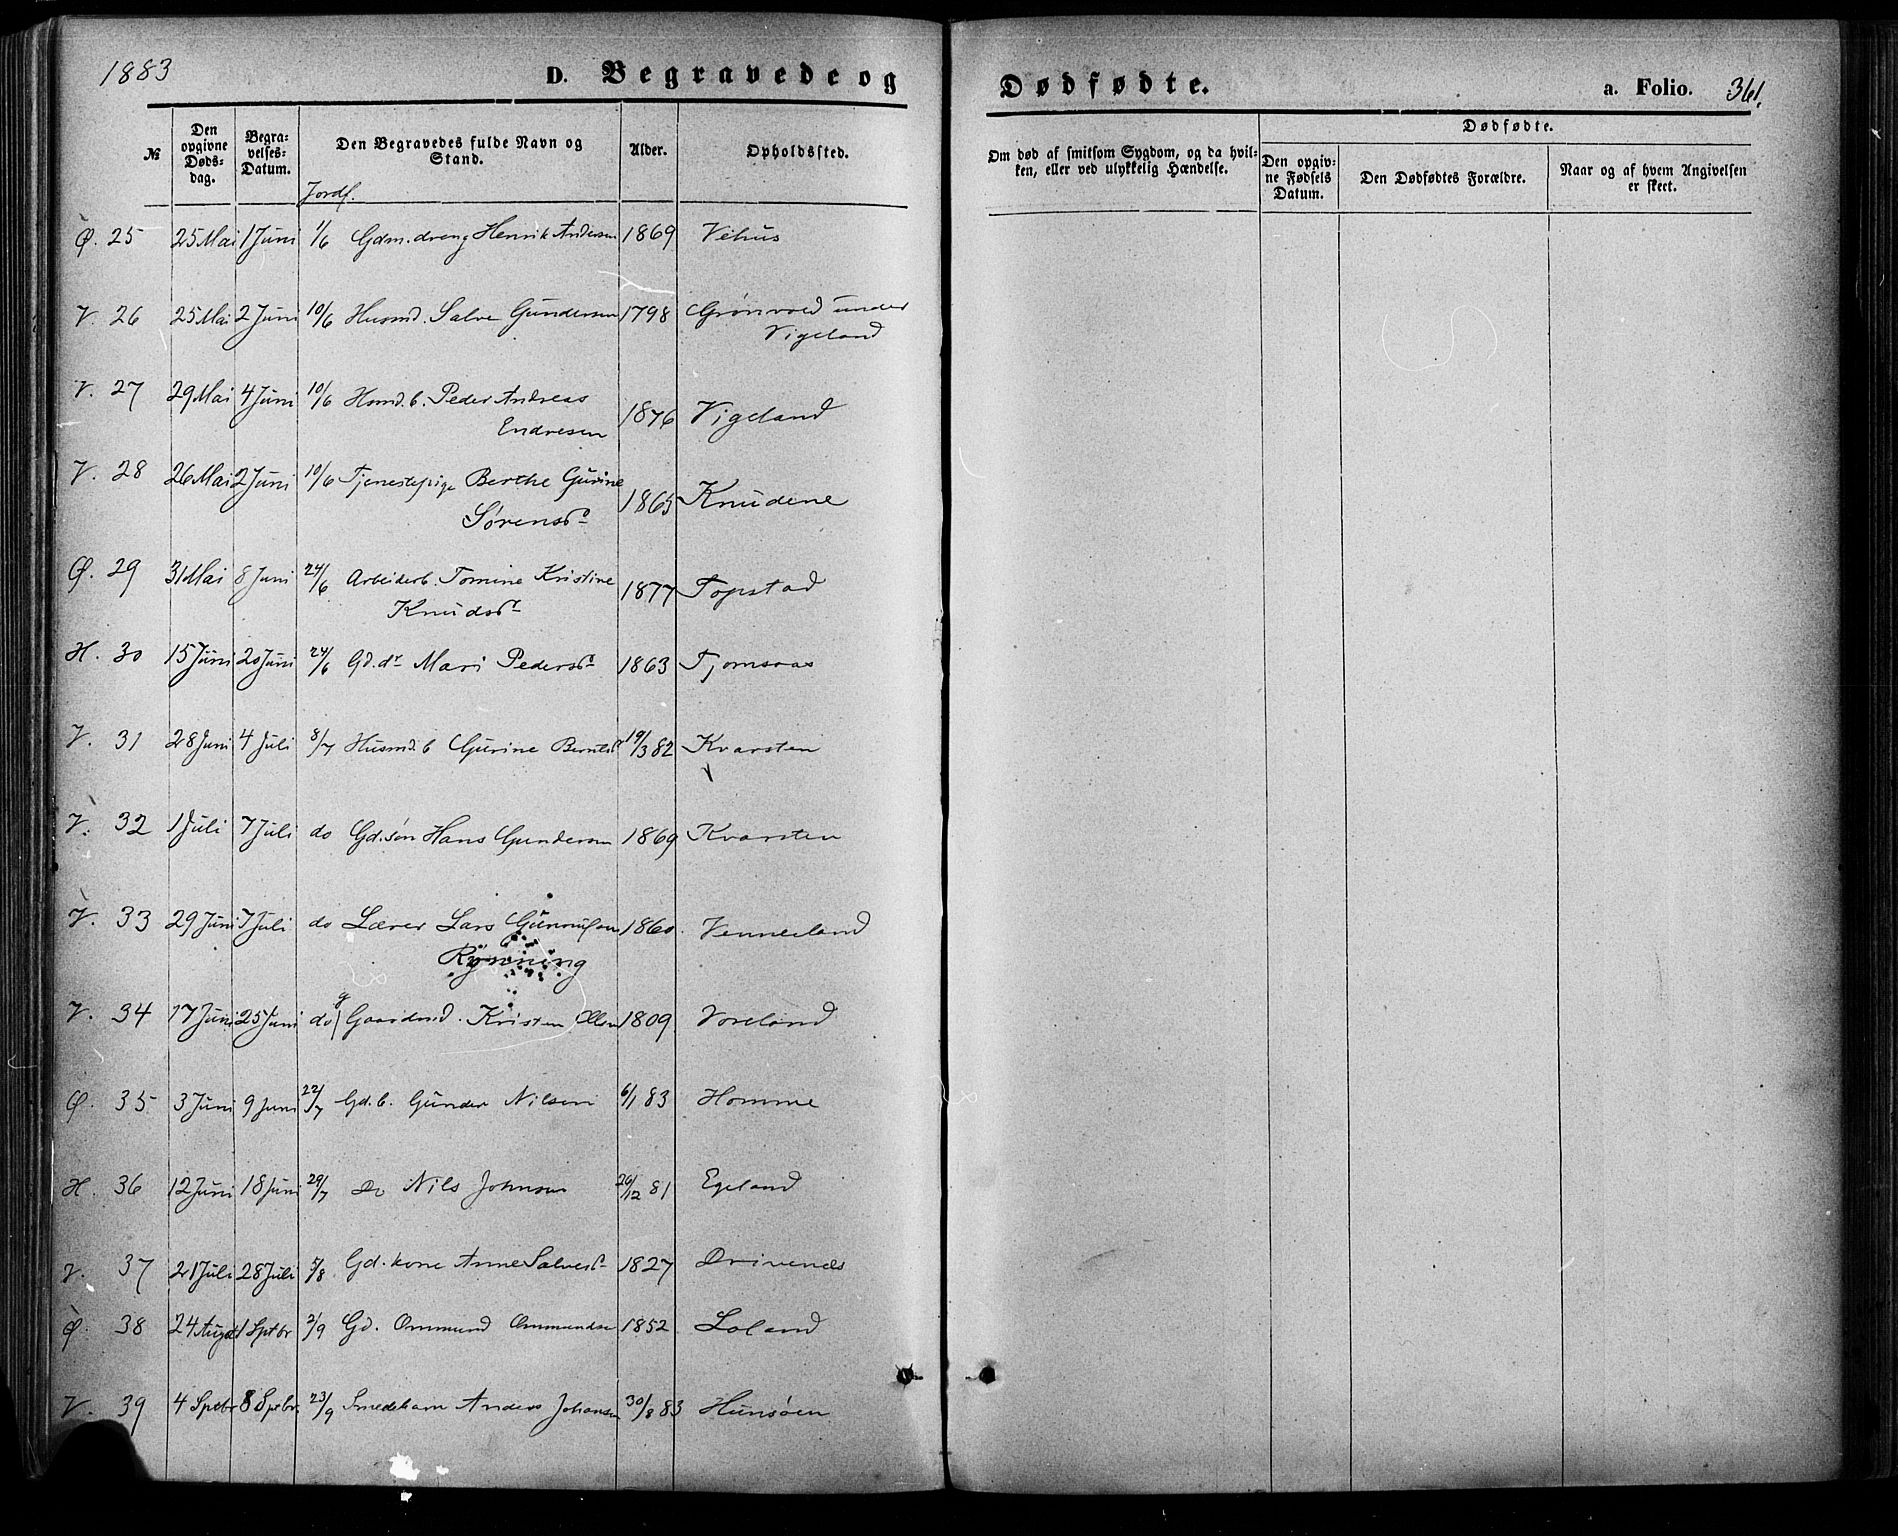 1883
D. Begravede og Dødfødte. a. Folio. 361.
№ | Den opgivne Døds-dag. | Begra-velses-Datum. | Den Begravedes fulde Navn og Stand. | Alder. | Opholdssted. | Om død af smitsom Sygdom, og da hvil-ken, eller ved ulykkelig Hændelse. | Dødfødte. | Den opgiv-ne Fødsels Datum. | Den Dødfødtes Forældre. | Naar og af hvem Angivelsen er skeet.
Jordf.
Ø. 25 25 Mai 1 Juni 1/6 Gdm. dreng Henrik Andersen 1869 Vehus
V. 26 25 Mai 2 Juni 10/6 Husmd. Salve Gundersen 1798 Grønvold under
Vigeland
V. 27 29 Mai 4 Juni 10/6 Hsmd. b. Peder Andreas
Endresen 1876 Vigeland
V. 28 26 Mai 2 Juni 10/6 Tjenestepige Berthe Gurine
Sørensd 1865 Knudene
Ø. 29 31 Mai 8 Juni 24/6 Arbeiderb. Tomine Kristine
Knudsd 1877 Topstad
H. 30 15 Juni 20 Juni 24/6 Gd. dr Mari Pedersd 1863 Tjomsaas
V. 31 28 Juni 4 Juli 8/7 Husmd. b Gurine Berntsd 19/3 82 Kvarsten
V. 32 1 Juli 7 Juli do Gd. søn Hans Gundersen 1869 Kvarsten
V. 33 29 Juni 7 Juli do Lærer Lars Gunnufsen 1860. Venneland
Rynning
V. 34 17 Juni 25 Juni do Gaardmd. Kristen Olsen 1809. Voreland
Ø. 35 3 Juni 9 Juni 22/7 Gd. b. Gunder Nilsen 6/1 83 Homme
H. 36 12 Juni 18 Juni 29/7 Do Nils Johnsen 26/12 81 Egeland
V. 37 21 Juli 28 Juli 5/8 Gd. kone Anne Salvesd 1827 Drivenes
Ø. 38 24 Augst 1 Sptbr 2/9 Gd. Ommund Ommundsen 1852. Loland
V. 39 4 Sptbr 8 Sptbr. 23/9 Smedebarn Anders Johansen 30/8 83 Hunsøen